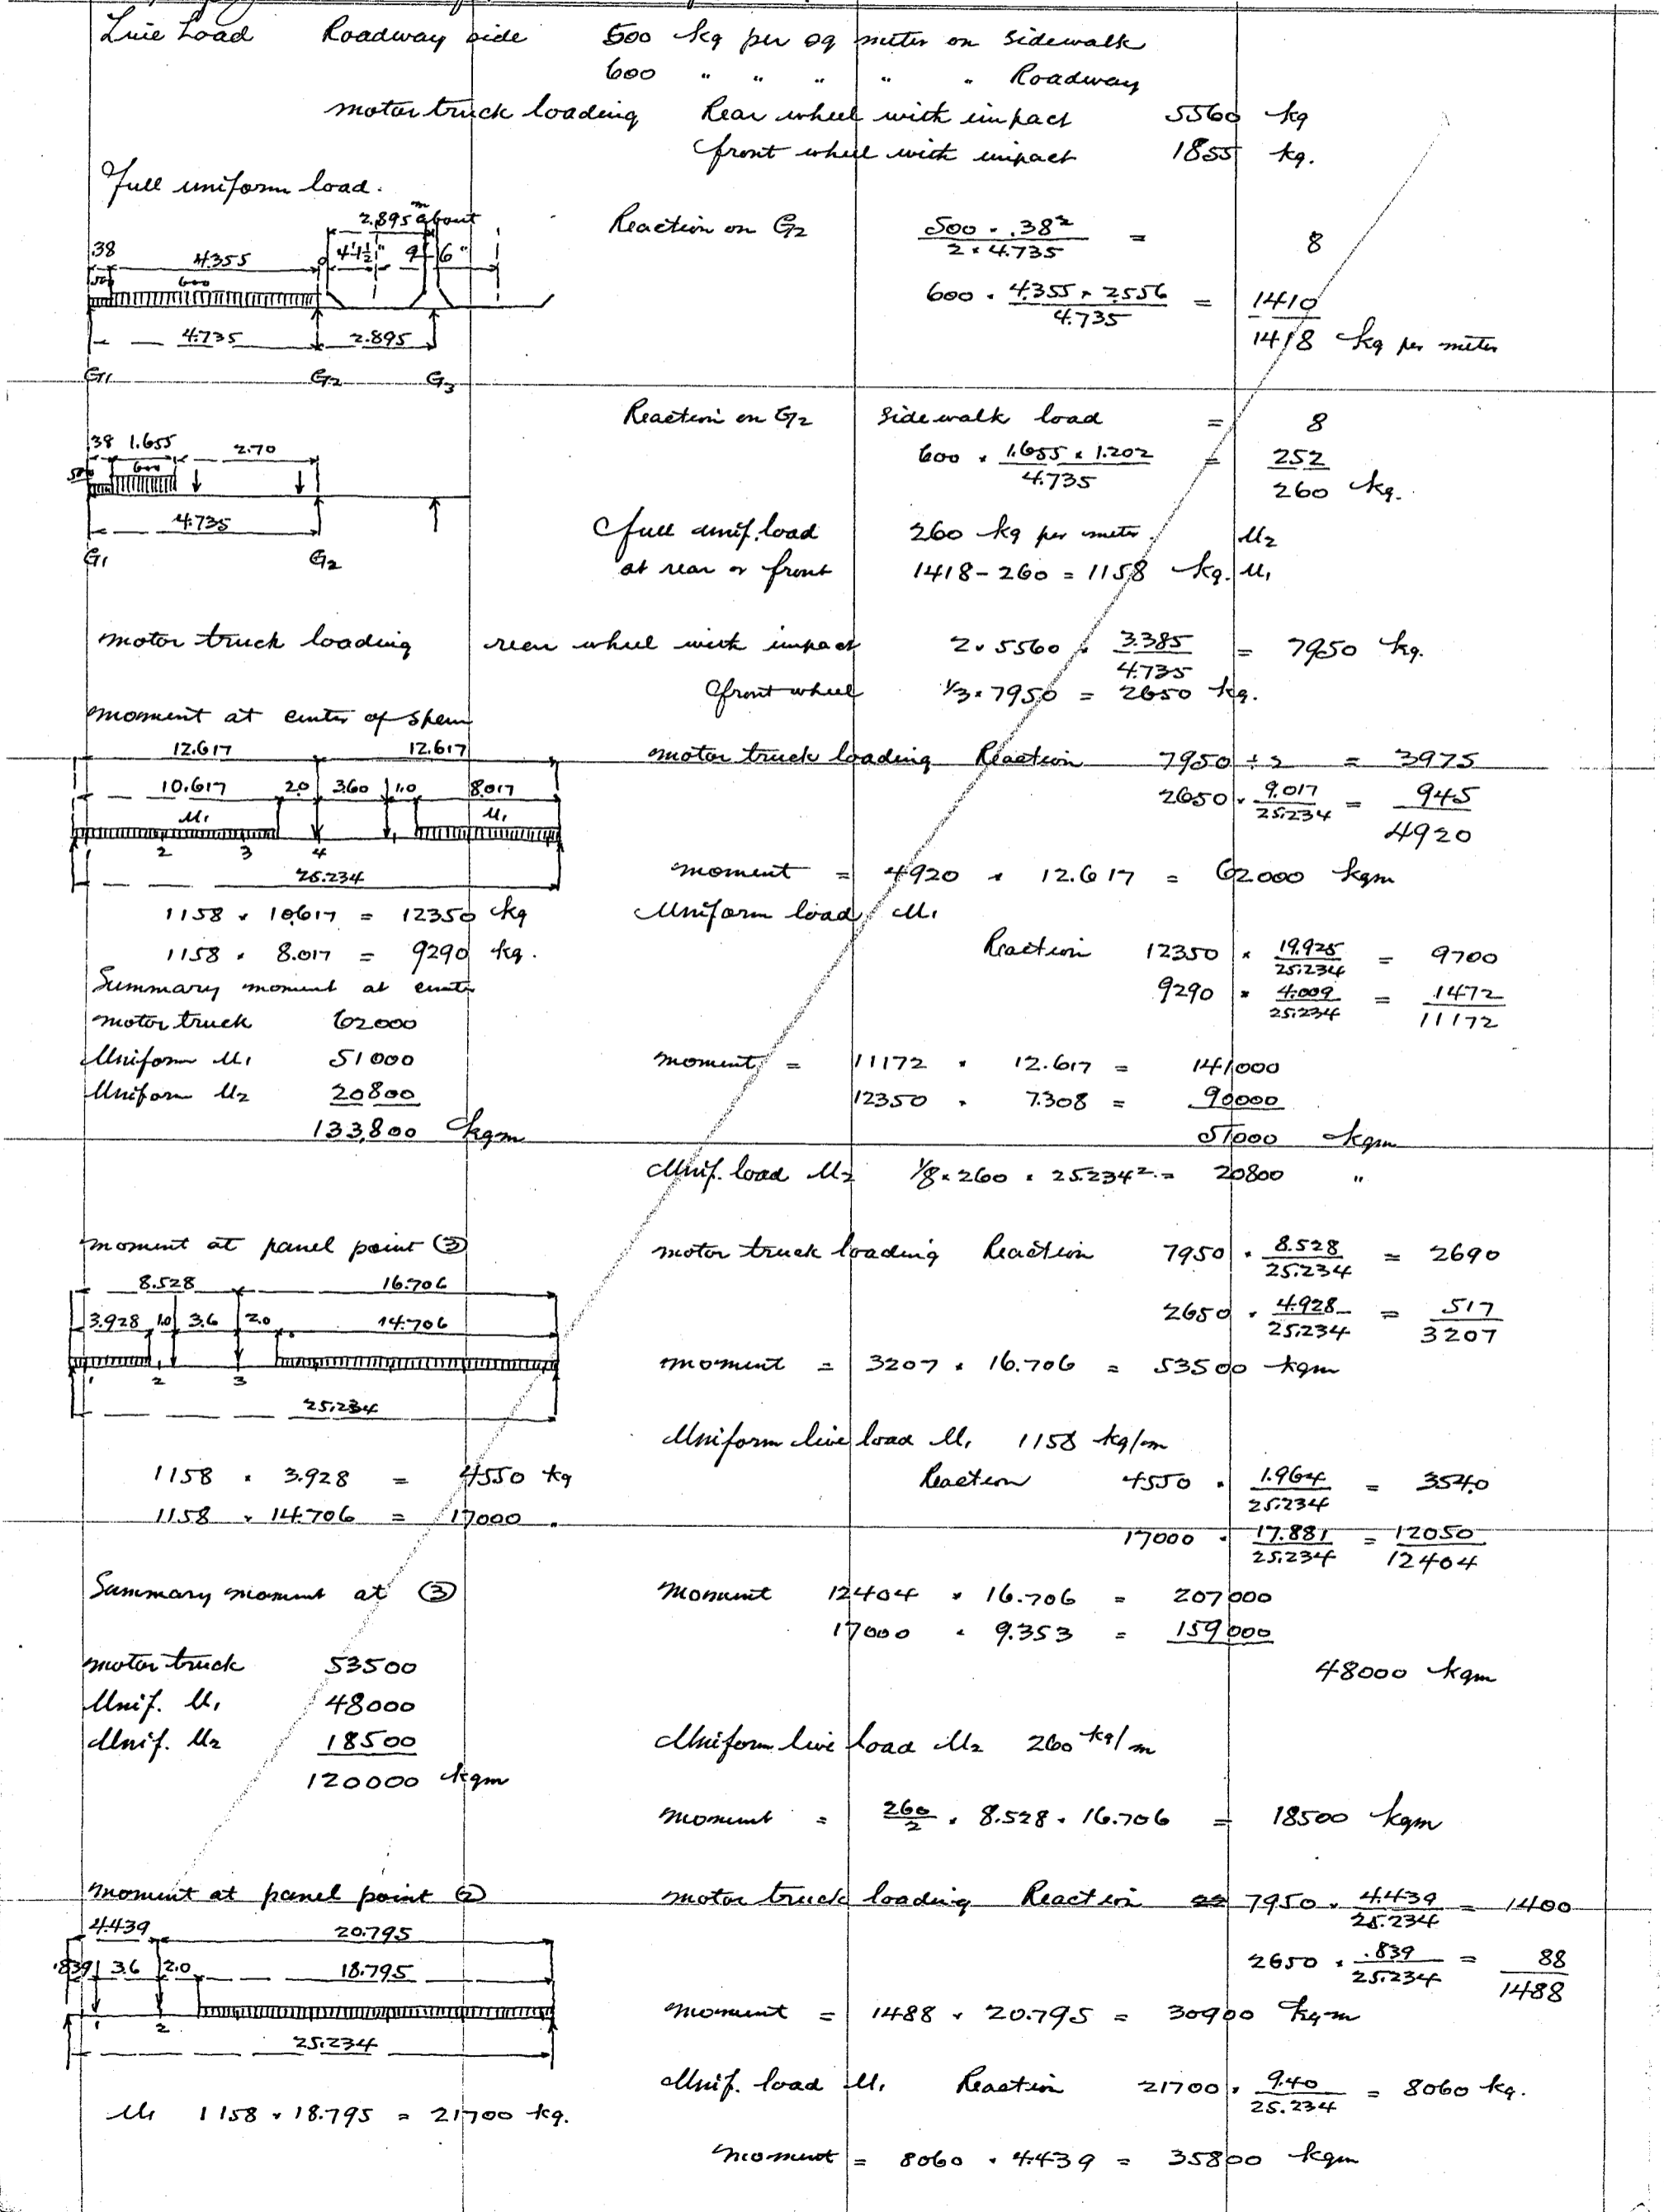 Live Load Roadway side 500 kg per sq meter on sidewalk
600 " " " " " Roadway
motor truck loading Rear wheel with impact 5560 kg
front wheel with impact 1855 kg.
Full uniform load.
2.895 m about
.38 4.355 4'1½" 9'6"
500 600
4.735 2.895
G1 G2 G3
Reaction on G2 500 × .38² / 2 × 4.735 = 8
600 × 4.355 × 2.556 / 4.735 = 1410
1418 kg per meter
.38 1.655 2.70
500 600
4.735
G1 G2
Reaction on G2 Sidewalk load = 8
600 × 1.655 × 1.202 / 4.735 = 252
260 kg.
Full unif. load 260 kg per meter. U2
at rear or front 1418 - 260 = 1158 kg. U1
motor truck loading rear wheel with impact 2 × 5560 × 3.385 / 4.735 = 7950 kg.
front wheel 1/3 × 7950 = 2650 kg.
moment at center of span
12.617 12.617
10.617 2.0 3.60 1.0 8.017
U1 U1
1 2 3 4
25.234
1158 × 10.617 = 12350 kg
1158 × 8.017 = 9290 kg.
Summary moment at center
motor truck 62000
Uniform U1 51000
Uniform U2 20800
133,800 kgm
motor truck loading Reaction 7950 ÷ 2 = 3975
2650 × 9.017 / 25.234 = 945
4920
moment = 4920 × 12.617 = 62000 kgm
Uniform load U1
Reaction 12350 × 19.925 / 25.234 = 9700
9290 × 4.009 / 25.234 = 1472
11172
moment = 11172 × 12.617 = 141000
12350 × 7.308 = 90000
51000 kgm
Unif. load U2 1/8 × 260 × 25.234² = 20800 "
moment at panel point ③
8.528 16.706
3.928 1.0 3.6 2.0 14.706
1 2 3
25.234
1158 × 3.928 = 4550 kg
1158 × 14.706 = 17000 "
Summary moment at ③
motor truck 53500
Unif. U1 48000
Unif. U2 18500
120000 kgm
motor truck loading Reaction 7950 × 8.528 / 25.234 = 2690
2650 × 4.928 / 25.234 = 517
3207
moment = 3207 × 16.706 = 53500 kgm
Uniform live load U1 1158 kg/m
Reaction 4550 × 1.964 / 25.234 = 354.0
17000 × 17.881 / 25.234 = 12050
12404
Moment 12404 × 16.706 = 207000
17000 × 9.353 = 159000
48000 kgm
Uniform live load U2 260 kg/m
moment = 260 / 2 × 8.528 × 16.706 = 18500 kgm
moment at panel point ②
4.439 20.795
.839 3.6 2.0 18.795
1 2
25.234
U1 1158 × 18.795 = 21700 kg.
motor truck loading Reaction 7950 × 4.439 / 25.234 = 1400
2650 × .839 / 25.234 = 88
1488
moment = 1488 × 20.795 = 30900 kgm
Unif. load U1 Reaction 21700 × 9.40 / 25.234 = 8060 kg.
moment = 8060 × 4.439 = 35800 kgm